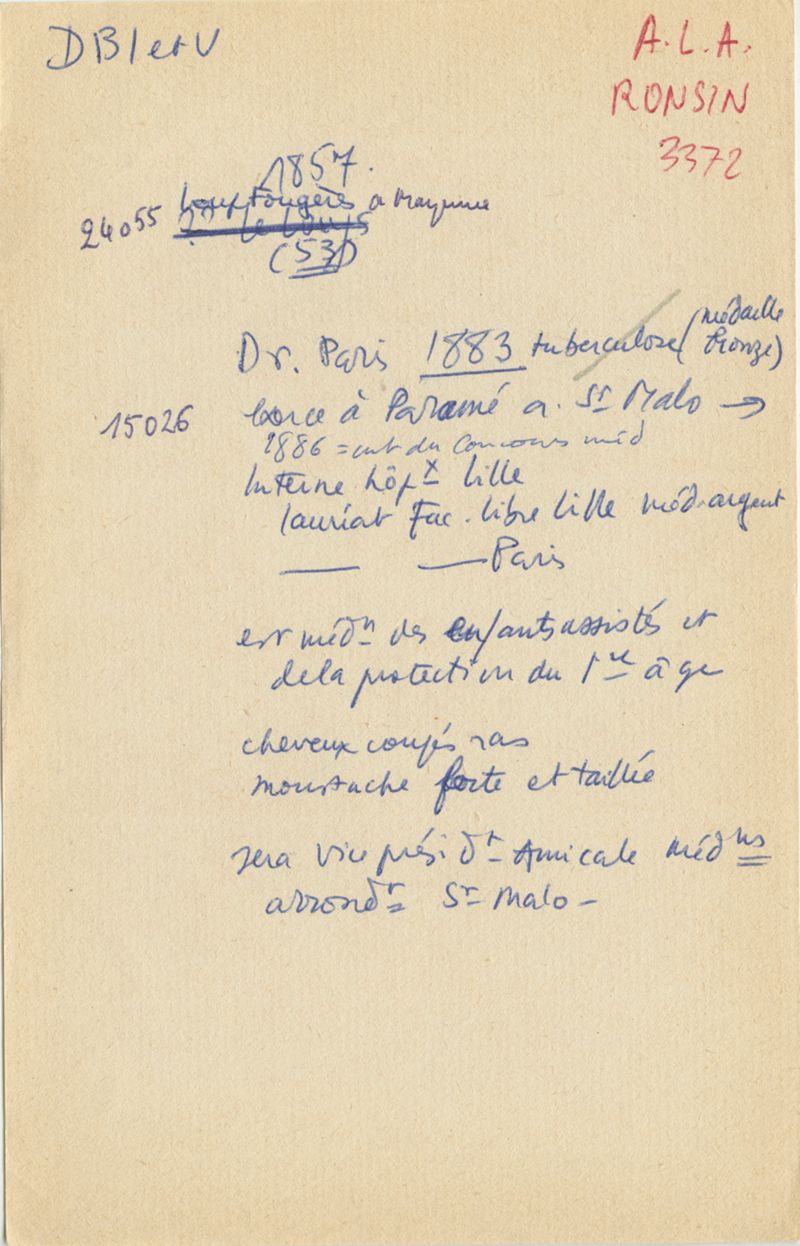 DBI et V
A.L.A.
RONSIN
3372
1857.
24055 Loupfougères a Mayenne
(53)
Dr. Paris 1883 tuberculose (médaille bronze)
15026 exerce à Paramé a. St Malo →
1886 = cult du Concours méd
Interne hôpx Lille
lauriat Fac. libre Lille méd-argent
— — Paris
est médn des enfants assistés et
de la protection du 1er âge
cheveux coupés ras
moustache forte et taillée
sera vice présidt Amicale médns
arrondt St Malo –